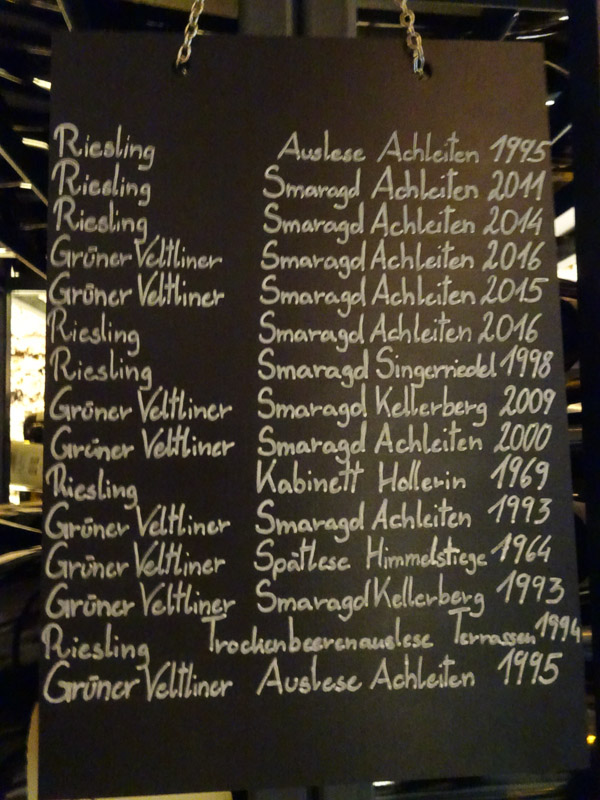 Riesling Auslese Achleiten 1995
Riesling Smaragd Achleiten 2011
Riesling Smaragd Achleiten 2014
Grüner Veltliner Smaragd Achleiten 2016
Grüner Veltliner Smaragd Achleiten 2015
Riesling Smaragd Achleiten 2016
Riesling Smaragd Singerriedel 1998
Grüner Veltliner Smaragd Kellerberg 2009
Grüner Veltliner Smaragd Achleiten 2000
Riesling Kabinett Hollerin 1969
Grüner Veltliner Smaragd Achleiten 1993
Grüner Veltliner Spätlese Himmelstiege 1964
Grüner Veltliner Smaragd Kellerberg 1993
Riesling Trockenbeerenauslese Terrassen 1994
Grüner Veltliner Auslese Achleiten 1995